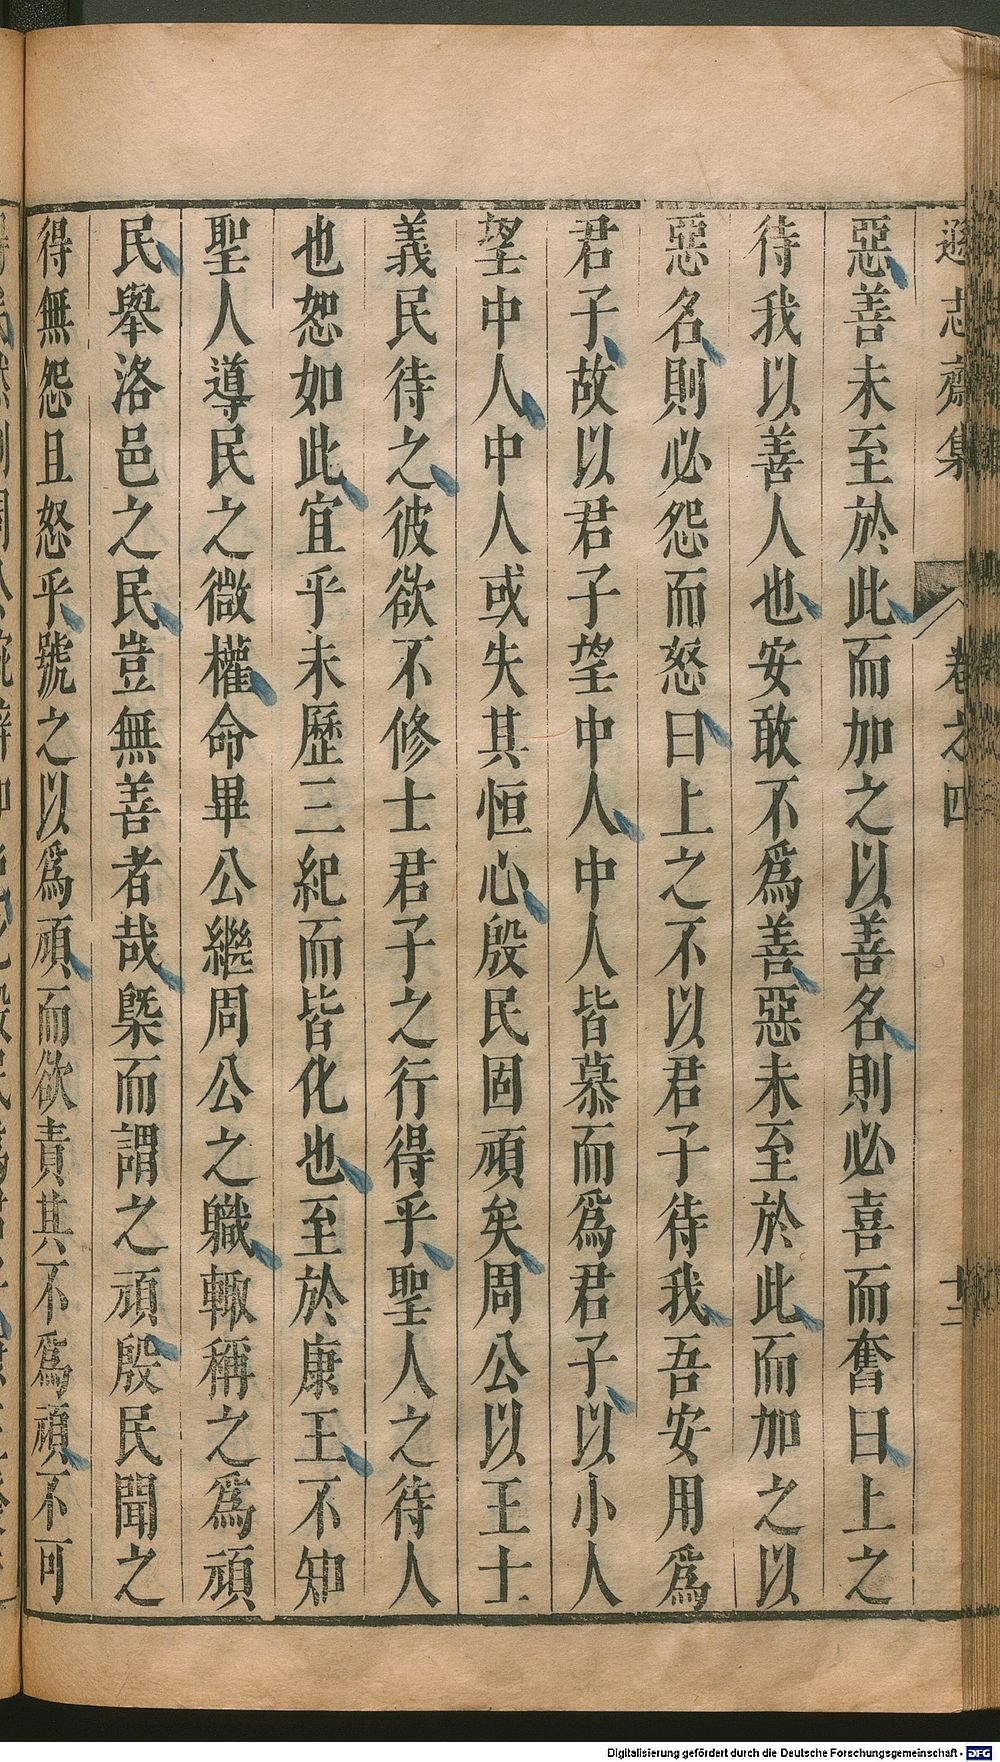 遜志齋集 卷之四 十二
惡善未至於此而加之以善名則必喜而奮曰上之
待我以善人也安敢不爲善惡未至於此而加之以
惡名則必怨而怒曰上之不以君子待我吾安用爲
君子故以君子望中人中人皆慕而爲君子以小人
望中人中人或失其恒心殷民固頑矣周公以王士
義民待之彼欲不修士君子之行得乎聖人之待人
也恕如此宜乎未歷三紀而皆化也至於康王不知
聖人導民之微權命畢公繼周公之職輙稱之爲頑
民舉洛邑之民豈無善者哉槩而謂之頑殷民聞之
得無怨且怒乎號之以爲頑而欲責其不爲頑不可
Digitalisierung gefördert durch die Deutsche Forschungsgemeinschaft - DFG